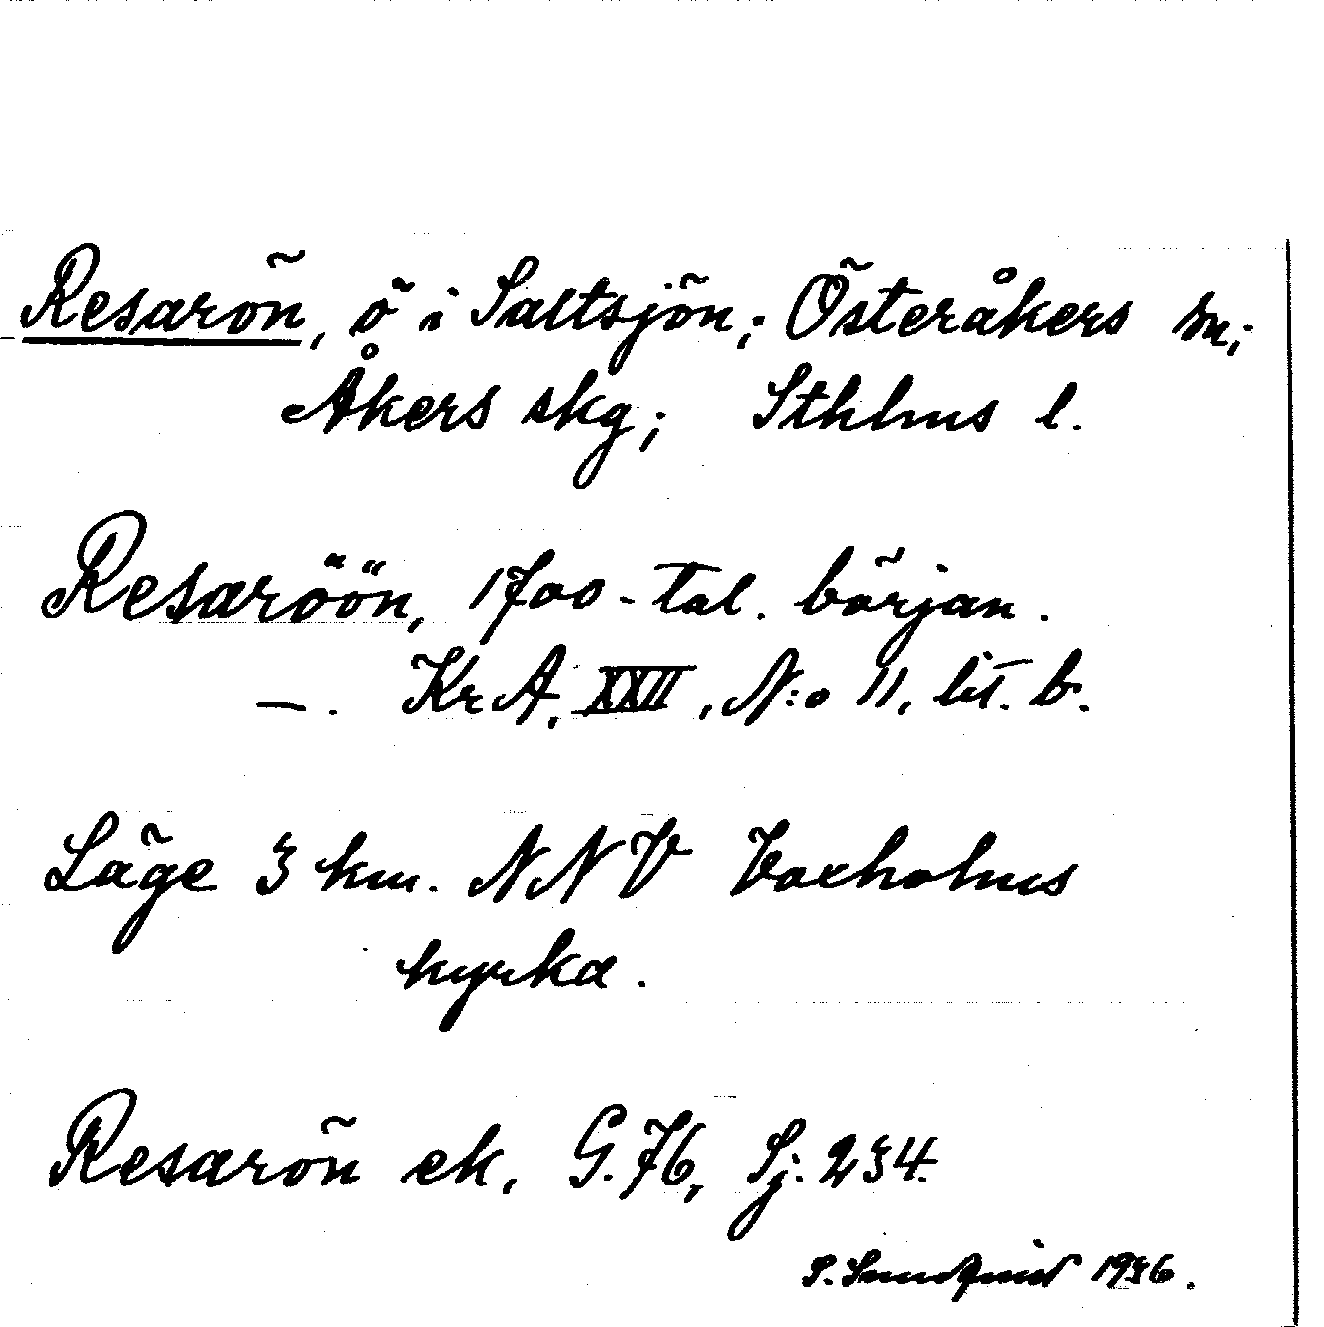 Resarön, ö i Saltsjön; Österåkers sn;
Åkers skg; Sthlms l.
Resaröön, 1700-tal. början.
—. KrA, XXII, N:o 11, lit. b.
Läge 3 km. NNV Vaxholms
kyrka.
Resarön ek. G. 76, Sj. 234.
S. Sundqvist 1936.